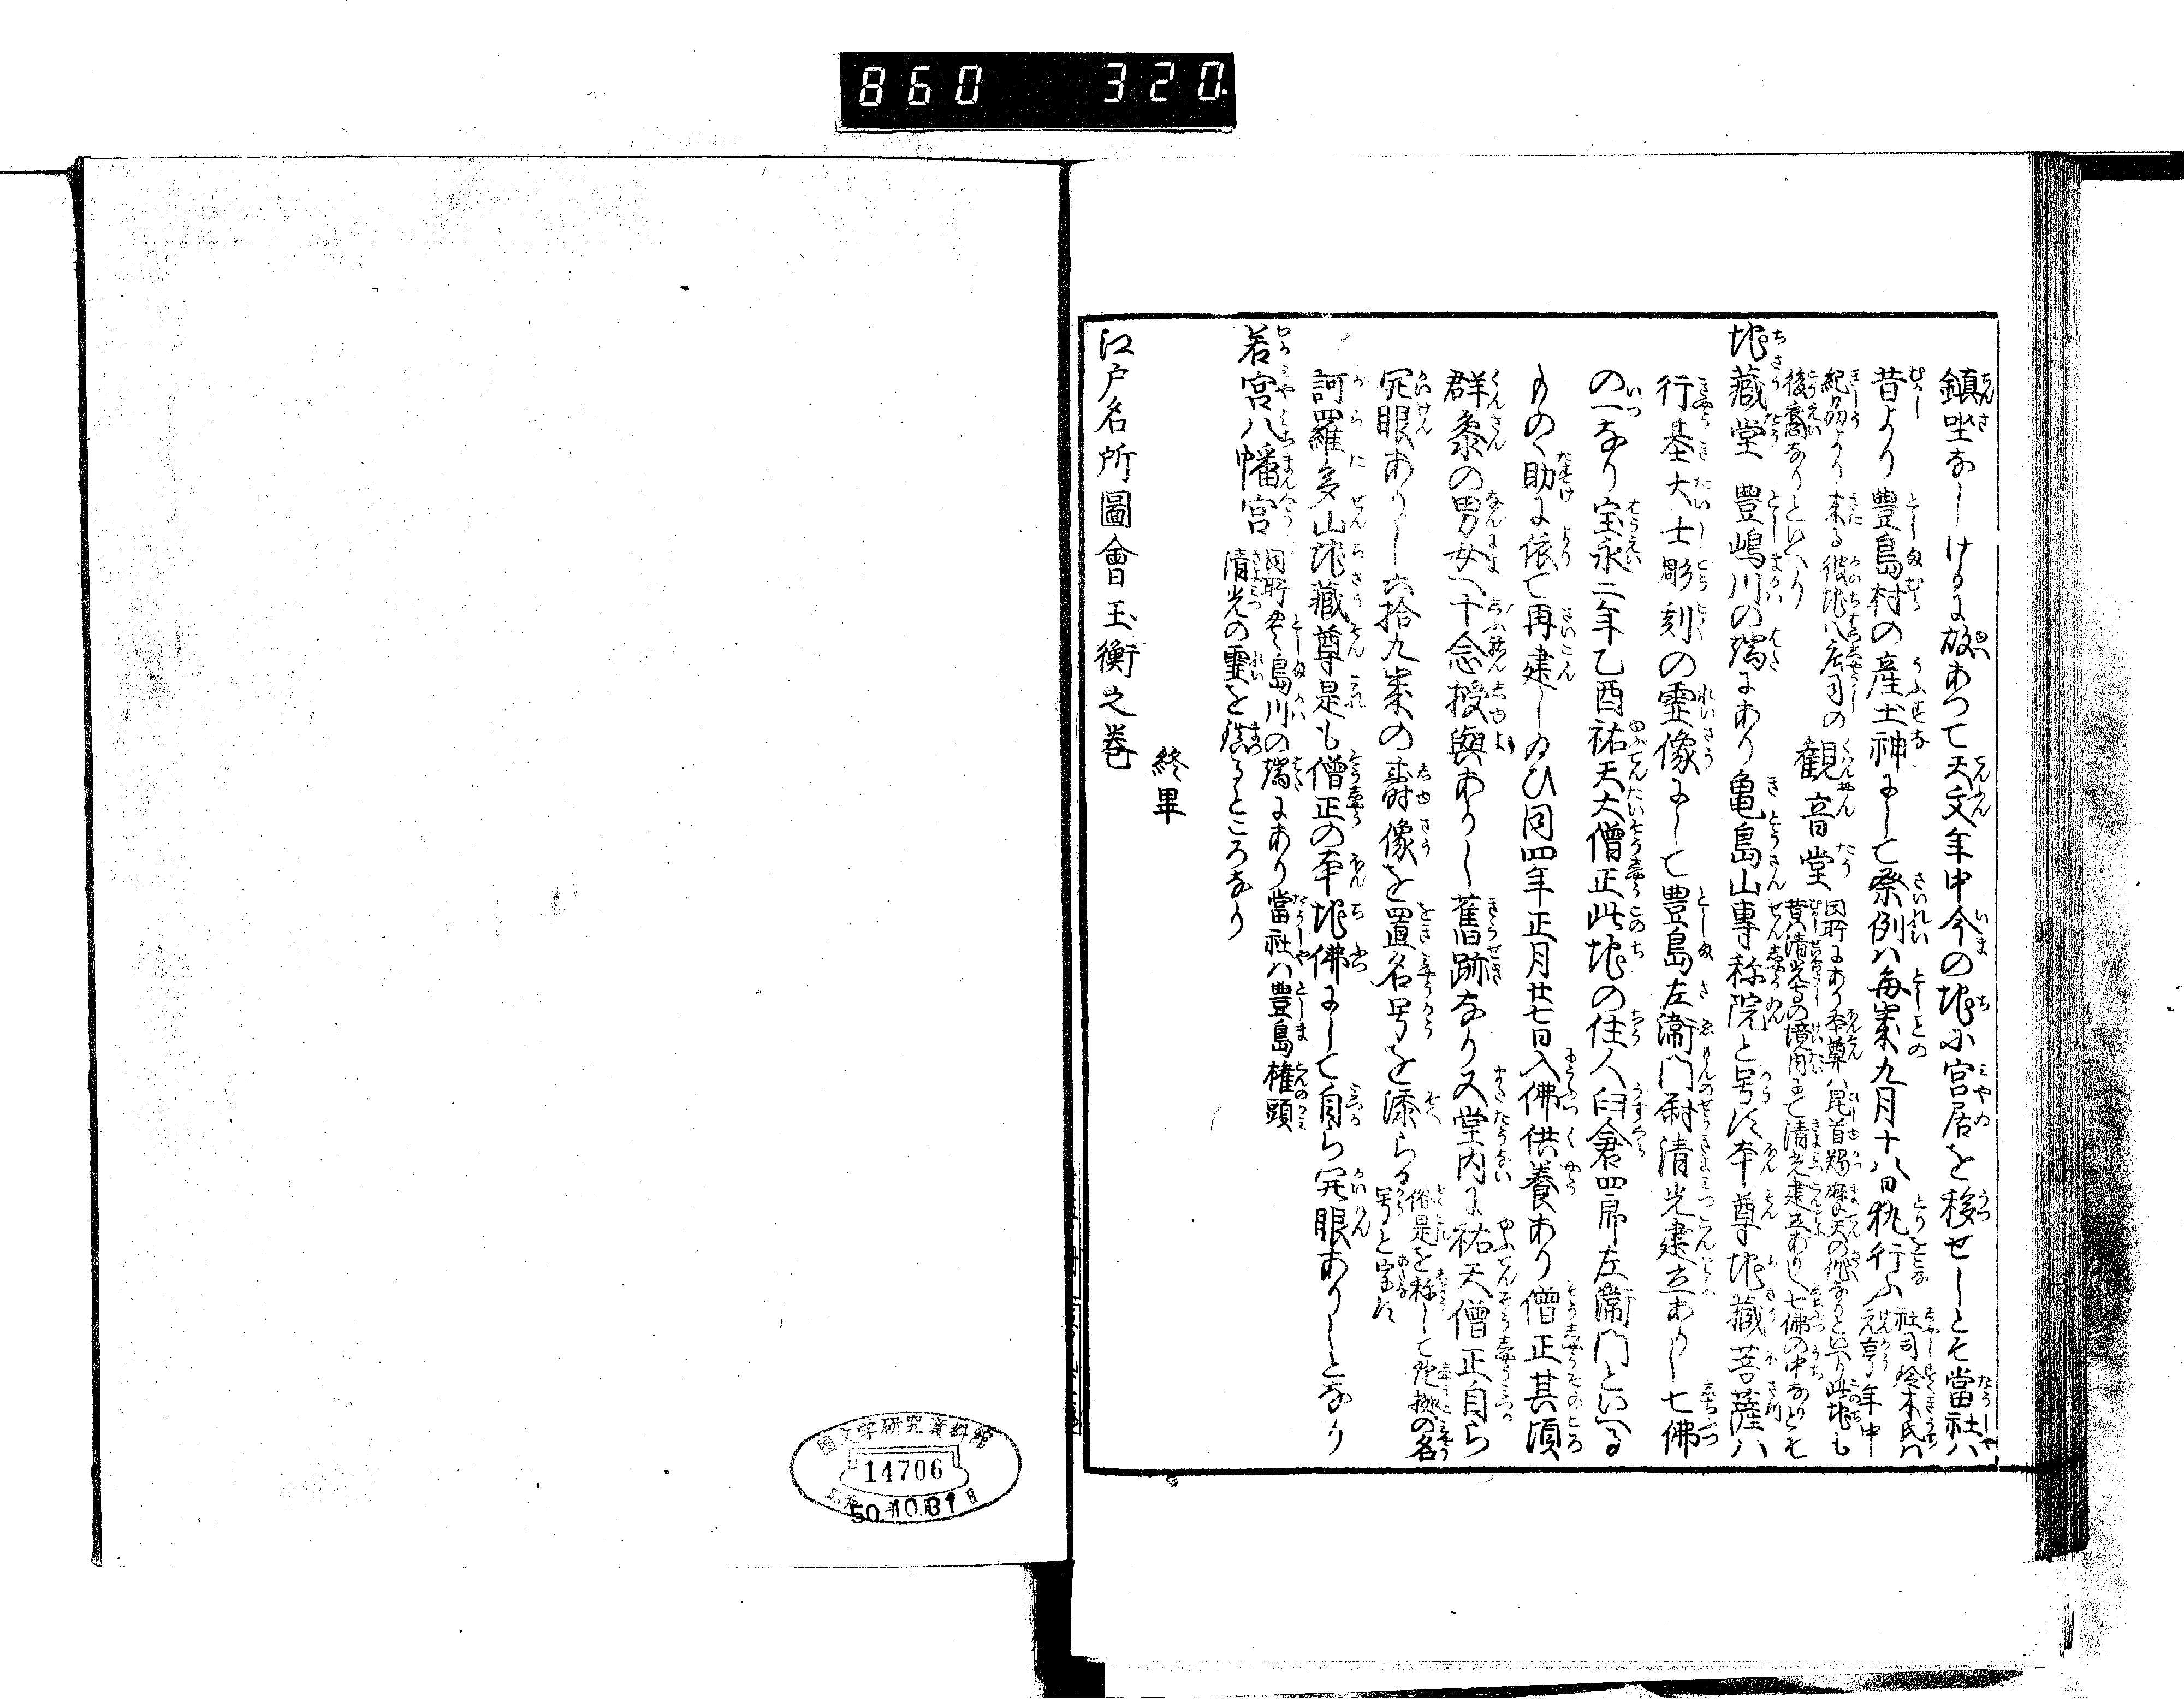 860 320.
鎮坐なしけるに故あつて天文年中今の地に宮居を移せしとそ當社ハ
昔より豊島村の産土神にして祭例ハ毎歳九月十八日執行ふ
社司鈴木氏ハ
元亨年中
紀州より来る彼地ハ庄司の
後裔なりといへり
観音堂
同所にあり本尊ハ毘首羯摩天の作なりと云り此地も
清光寺の境内にて清光建立ありし七佛の中なりとそ
地藏堂 豊嶋川の端にあり亀島山專称院と号す本尊地藏菩薩ハ
行基大士彫刻の霊像にして豊島左衛門尉清光建立ありし七佛
の一なり宝永二年乙酉祐天大僧正此地の住人臼倉四郎左衛門といへる
ものゝ助に依て再建し給ひ同四年正月廿七日入佛供養あり僧正其頃
群叅の男女へ十念授與ありし舊跡なり又堂内に祐天僧正自ら
開眼ありし六拾九歳の壽像を置名号を添らる
俗是を称して の名
号と字す
訶羅多山地藏尊是も僧正の本地佛にして自ら開眼ありしとなり
若宮八幡宮
同所豊島川の端にあり當社ハ豊島権頭
清光の霊を鎮るところなり
終畢
江戸名所圖會玉衡之巻
國文学研究資料館
14706
50.10.31